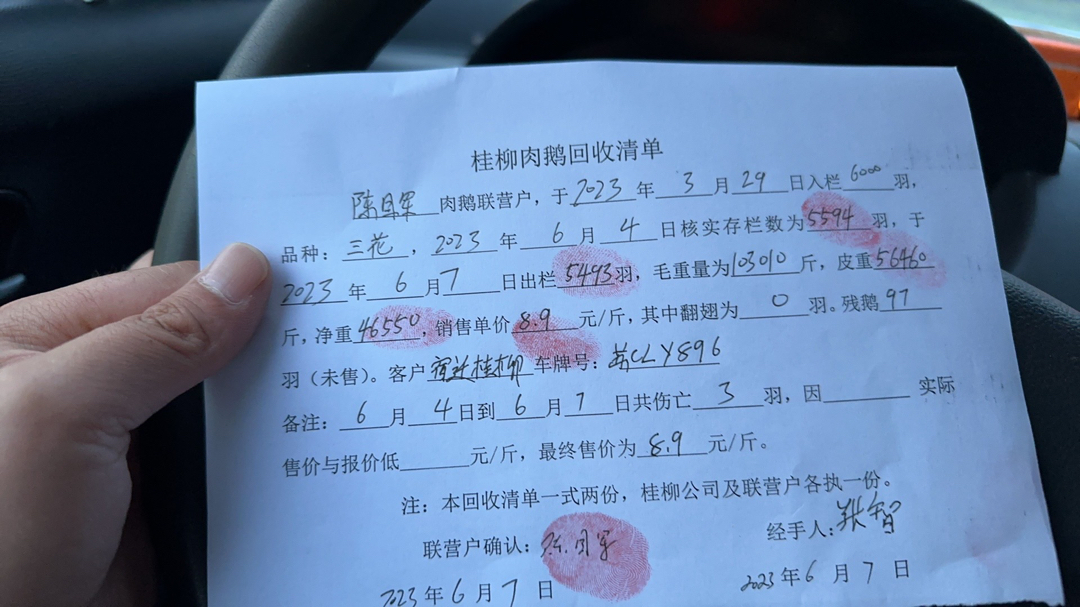 桂柳肉鹅回收清单
陈目军肉鹅联营户，于2023年3月29日入栏6000羽，
品种：三花，2023年6月4日核实存栏数为5594羽，于
2023年6月7日出栏5493羽，毛重量为103010斤，皮重56460
斤，净重46550，销售单价8.9元/斤，其中翻翅为0羽。残鹅97
羽（未售）。客户宿迁桂柳车牌号：苏CLY896
备注：6月4日到6月7日共伤亡3羽，因 实际
售价与报价低 元/斤，最终售价为8.9元/斤。
注：本回收清单一式两份，桂柳公司及联营户各执一份。
联营户确认：陈目军 经手人：
2023年6月7日 2023年6月7日